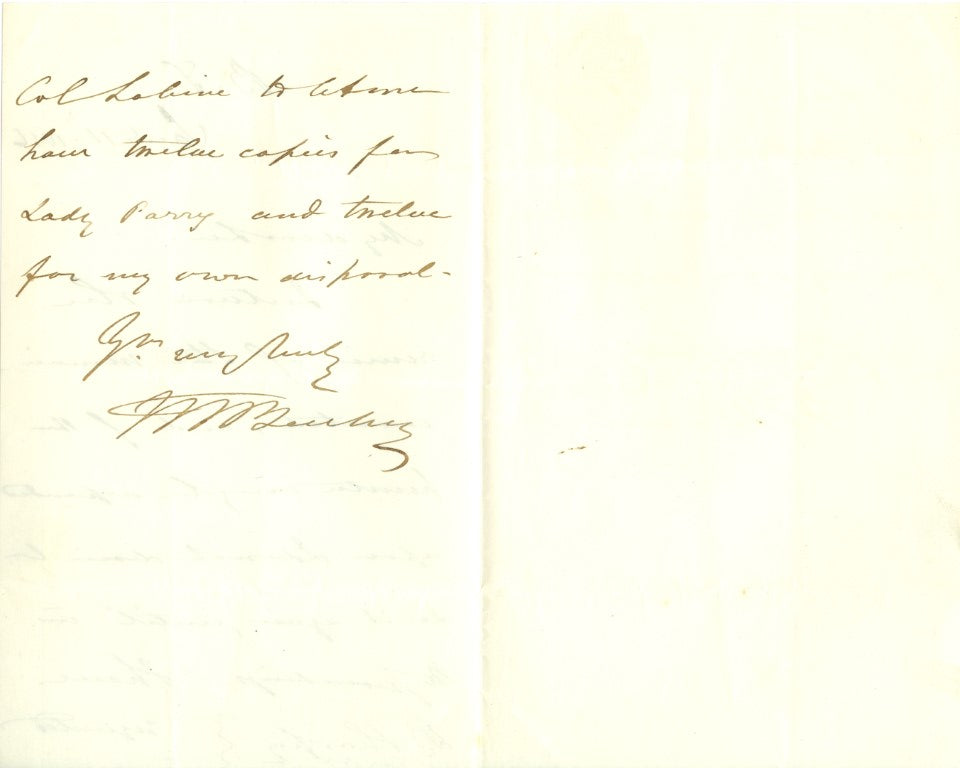 Col Sabine to let me
have twelve copies for
Lady Parry and twelve
for my own disposal -
Yrs. very truly